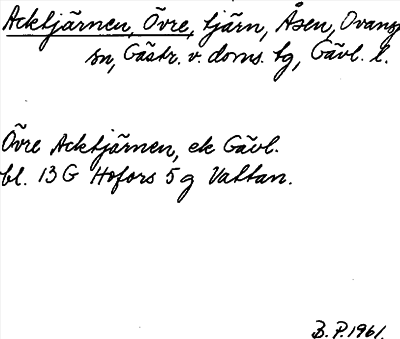 Acktjärnen, Övre, tjärn, Åsen, Ovansj
sn, Gästr. v. doms. tg, Gävl. l.
Övre Acktjärnen, ek Gävl.
bl. 13 G Hofors 5 g Vattan.
B. P. 1961.